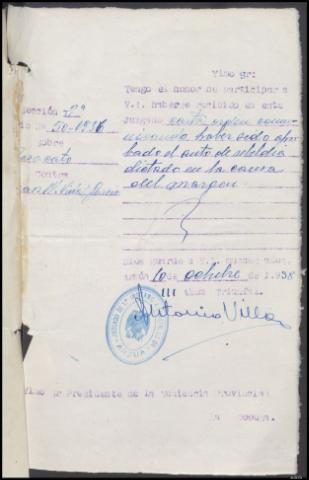 Ylmo Sr:
Tengo el honor de participar a
V.I. haberse recibido en este
Juzgado carta orden comu-
nicando haber sido apro-
bado el auto de rebeldía
dictado en la causa
del margen
Sección 2ª
50-1936
sobre
Contra
Dios guarde a V.I. muchos años.
10 de octubre de 1.938
III Año Triunfal.
Antonio Villa
Presidente de la Audiencia Provincial
La Coruña.